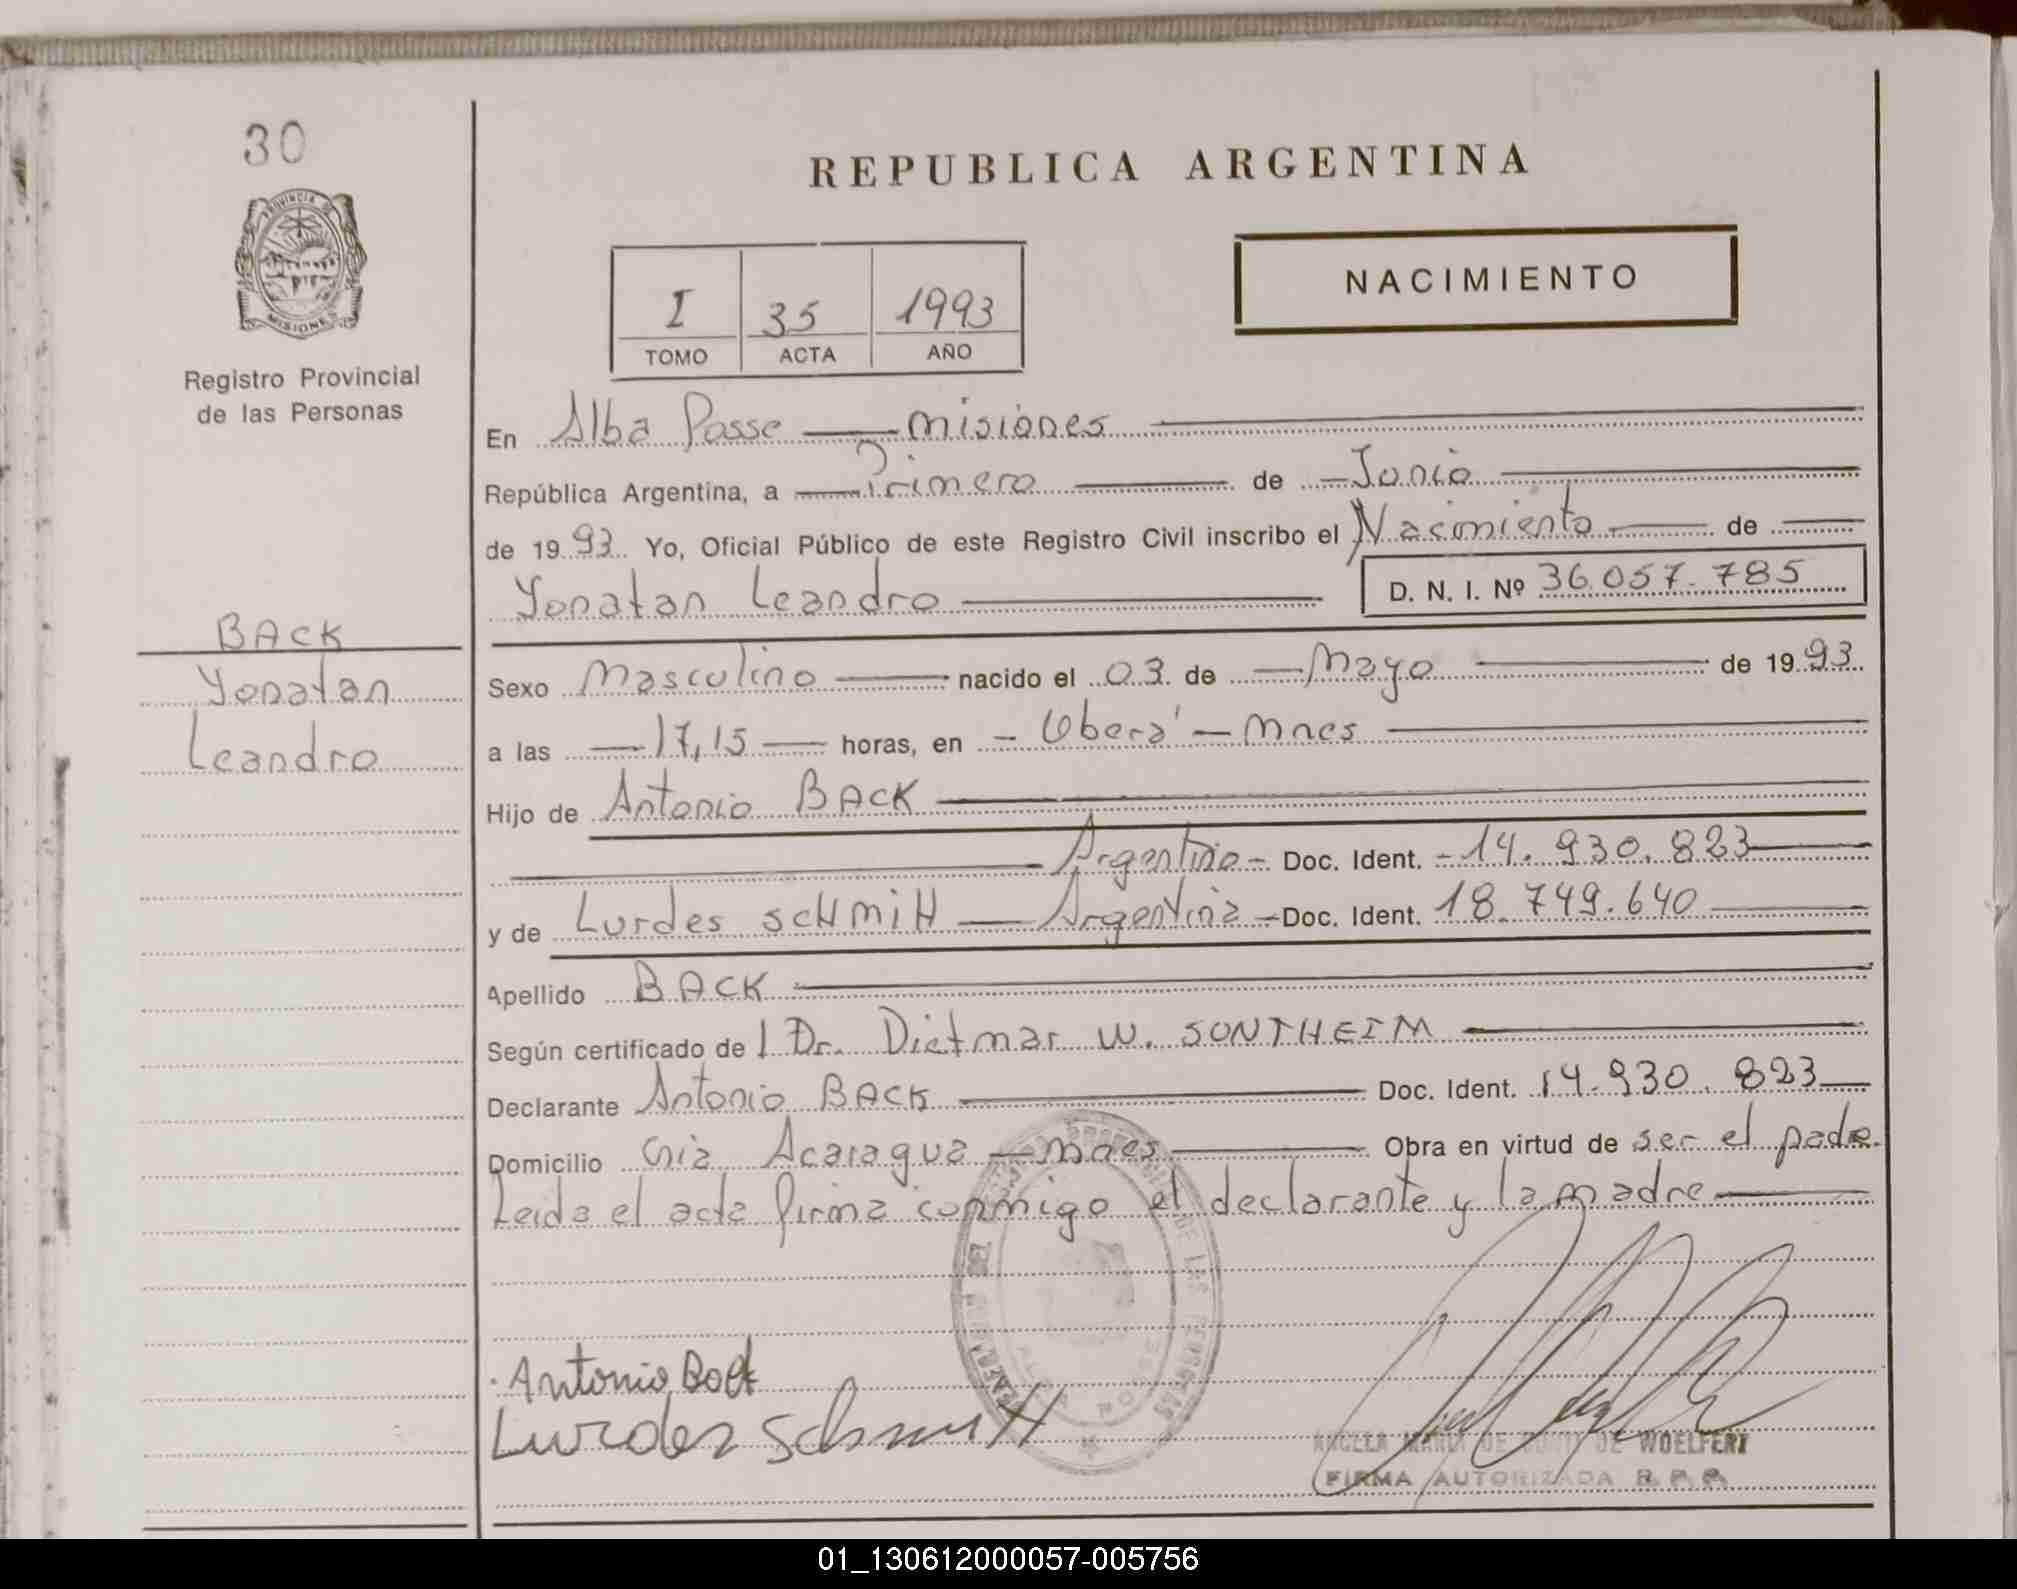 30
PROVINCIA DE
MISIONES
Registro Provincial
de las Personas
BACK
Yonatan
Leandro
REPUBLICA ARGENTINA
NACIMIENTO
I 35 1993
TOMO ACTA AÑO
En Alba Posse — Misiones
República Argentina, a — Primero — de — Junio
de 1993 Yo, Oficial Público de este Registro Civil inscribo el Nacimiento — de —
Yonatan Leandro — D. N. I. Nº 36.057.785
Sexo Masculino — nacido el 03 de — Mayo — de 1993
a las — 17,15 — horas, en - Oberá - Mnes
Hijo de Antonio BACK
— Argentino - Doc. Ident. - 14.930.823 —
y de Lurdes SCHMITT — Argentina - Doc. Ident. 18.749.640 —
Apellido BACK
Según certificado de l Dr. Dietmar W. SONTHEIM
Declarante Antonio BACK — Doc. Ident. 14.930.823 —
Domicilio Acaragua — Mnes — Obra en virtud de ser el padre.
Leida el acta firma conmigo el declarante y la madre —
Antonio Back
Lurdes Schmitt
ALBA POSSE
ANGELA MARIA DE DE WOELFERT
FIRMA AUTORIZADA R. P. P.
01_130612000057-005756